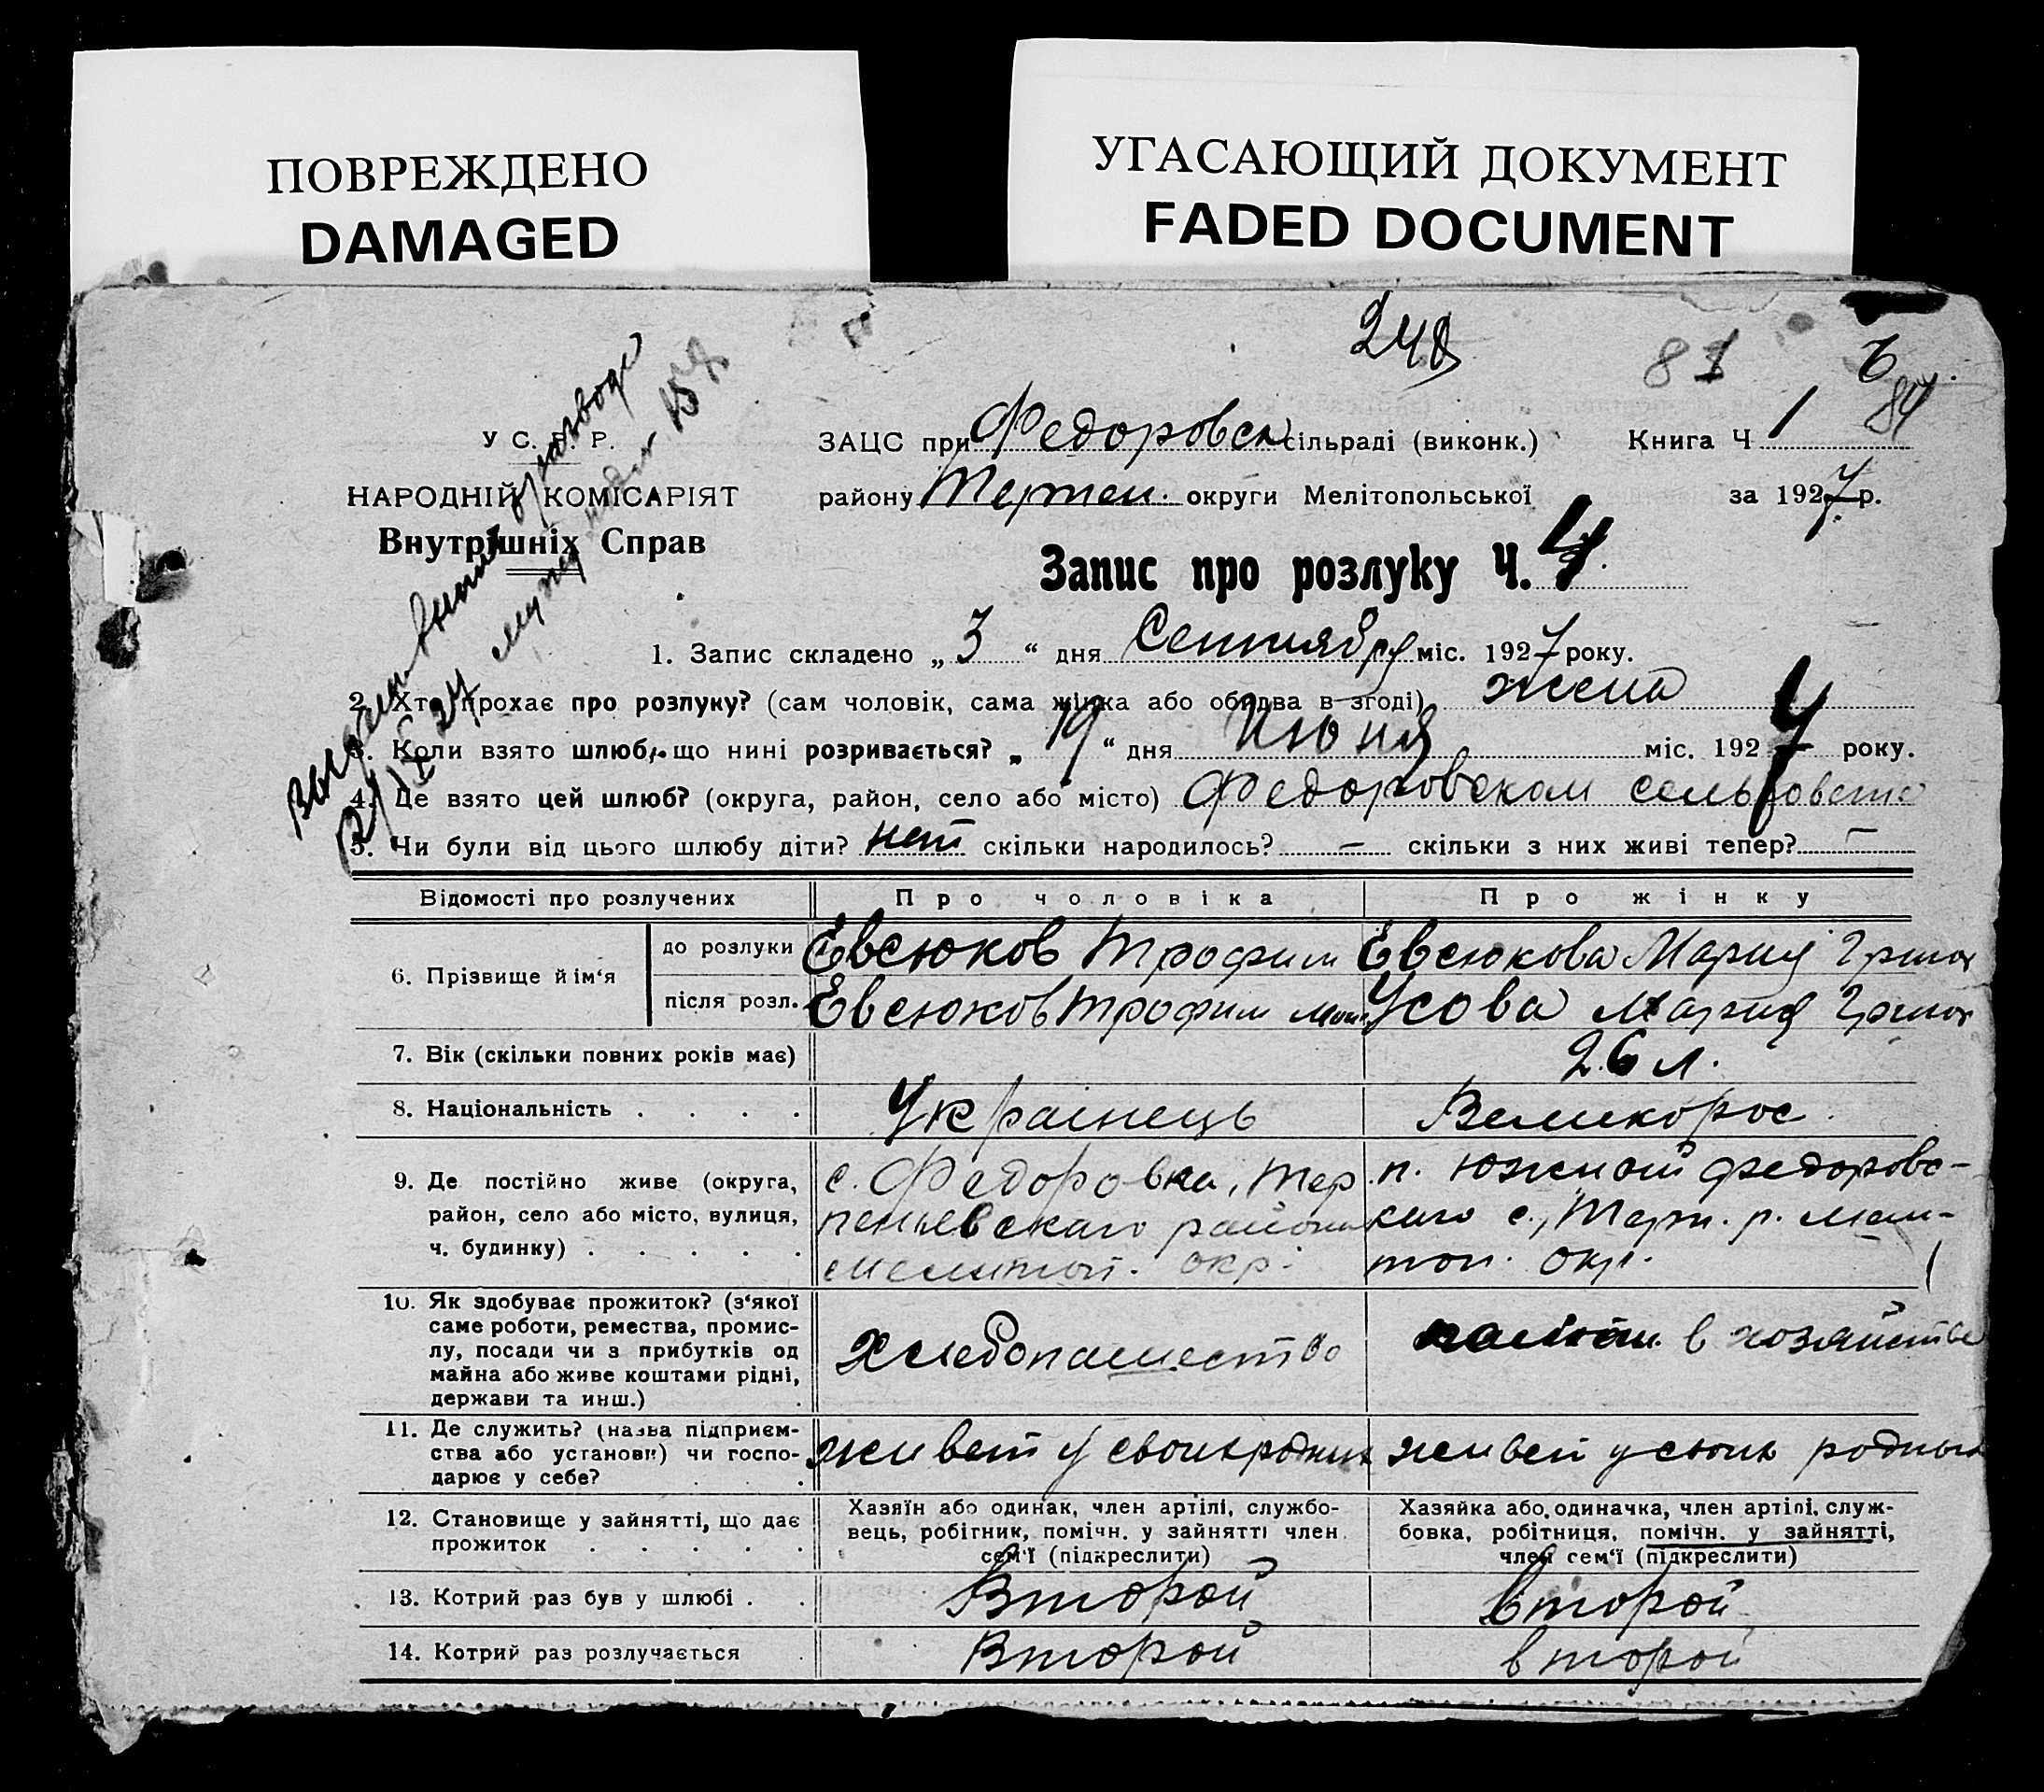 ПОВРЕЖДЕНО
DAMAGED
УГАСАЮЩИЙ ДОКУМЕНТ
FADED DOCUMENT
248
81
6
84
У С. Р. Р.
НАРОДНІЙ КОМІСАРІЯТ
Внутрішніх Справ
ЗАЦС при Федоровск сільраді (виконк.) Книга Ч 1
району Терпен. округи Мелітопольської за 1927 р.
Запис про розлуку Ч. 4.
1. Запис складено „ 3 “ дня Сентября міс. 1927 року.
2. Хто прохає про розлуку? (сам чоловік, сама жінка або обидва в згоді) жена
3. Коли взято шлюб, що нині розривається? „ 19 “ дня Июня міс. 192 року.
4. Де взято цей шлюб? (округа, район, село або місто) Федоровском сельсовете
5. Чи були від цього шлюбу діти? нет скільки народилось? – скільки з них живі тепер? –
Відомості про розлучених Про чоловіка Про жінку
6. Прізвище й ім‘я до розлуки Евсюков Трофим Евсюкова Мария Григор
після розл. Евсюков Трофим Усова Мария Григор
7. Вік (скільки повних років має) 26 л.
8. Національність . . . . Украінець Великорос.
9. Де постійно живе (округа, район, село або місто, вулиця, ч. будинку) . . . . .
с. Федоровка, Тер
пеньевскаго района
Мелитоп. окр.
п. Южной Федоровс-
каго с., Терп. р. Мели-
топ. окр.
10. Як здобуває прожиток? (з‘якої
саме роботи, ремества, промис-
лу, посади чи з прибутків од
майна або живе коштами рідні,
держави та инш.)
Хлебопашество
в хозяйстве
11. Де служить? (назва підприєм-
ства або установи) чи госпо-
дарює у себе? . .
живет у своих родных
живет у своих родных
12. Становище у зайнятті, що дає
прожиток . . . . .
Хазяїн або одинак, член артілі, службо-
вець, робітник, помічн. у зайнятті член
сем‘ї (підкреслити)
Хазяйка або одиначка, член артілі, служ-
бовка, робітниця, помічн. у зайнятті,
член сем‘ї (підкреслити)
13. Котрий раз був у шлюбі . . Второй второй
14. Котрий раз розлучається . Второй второй